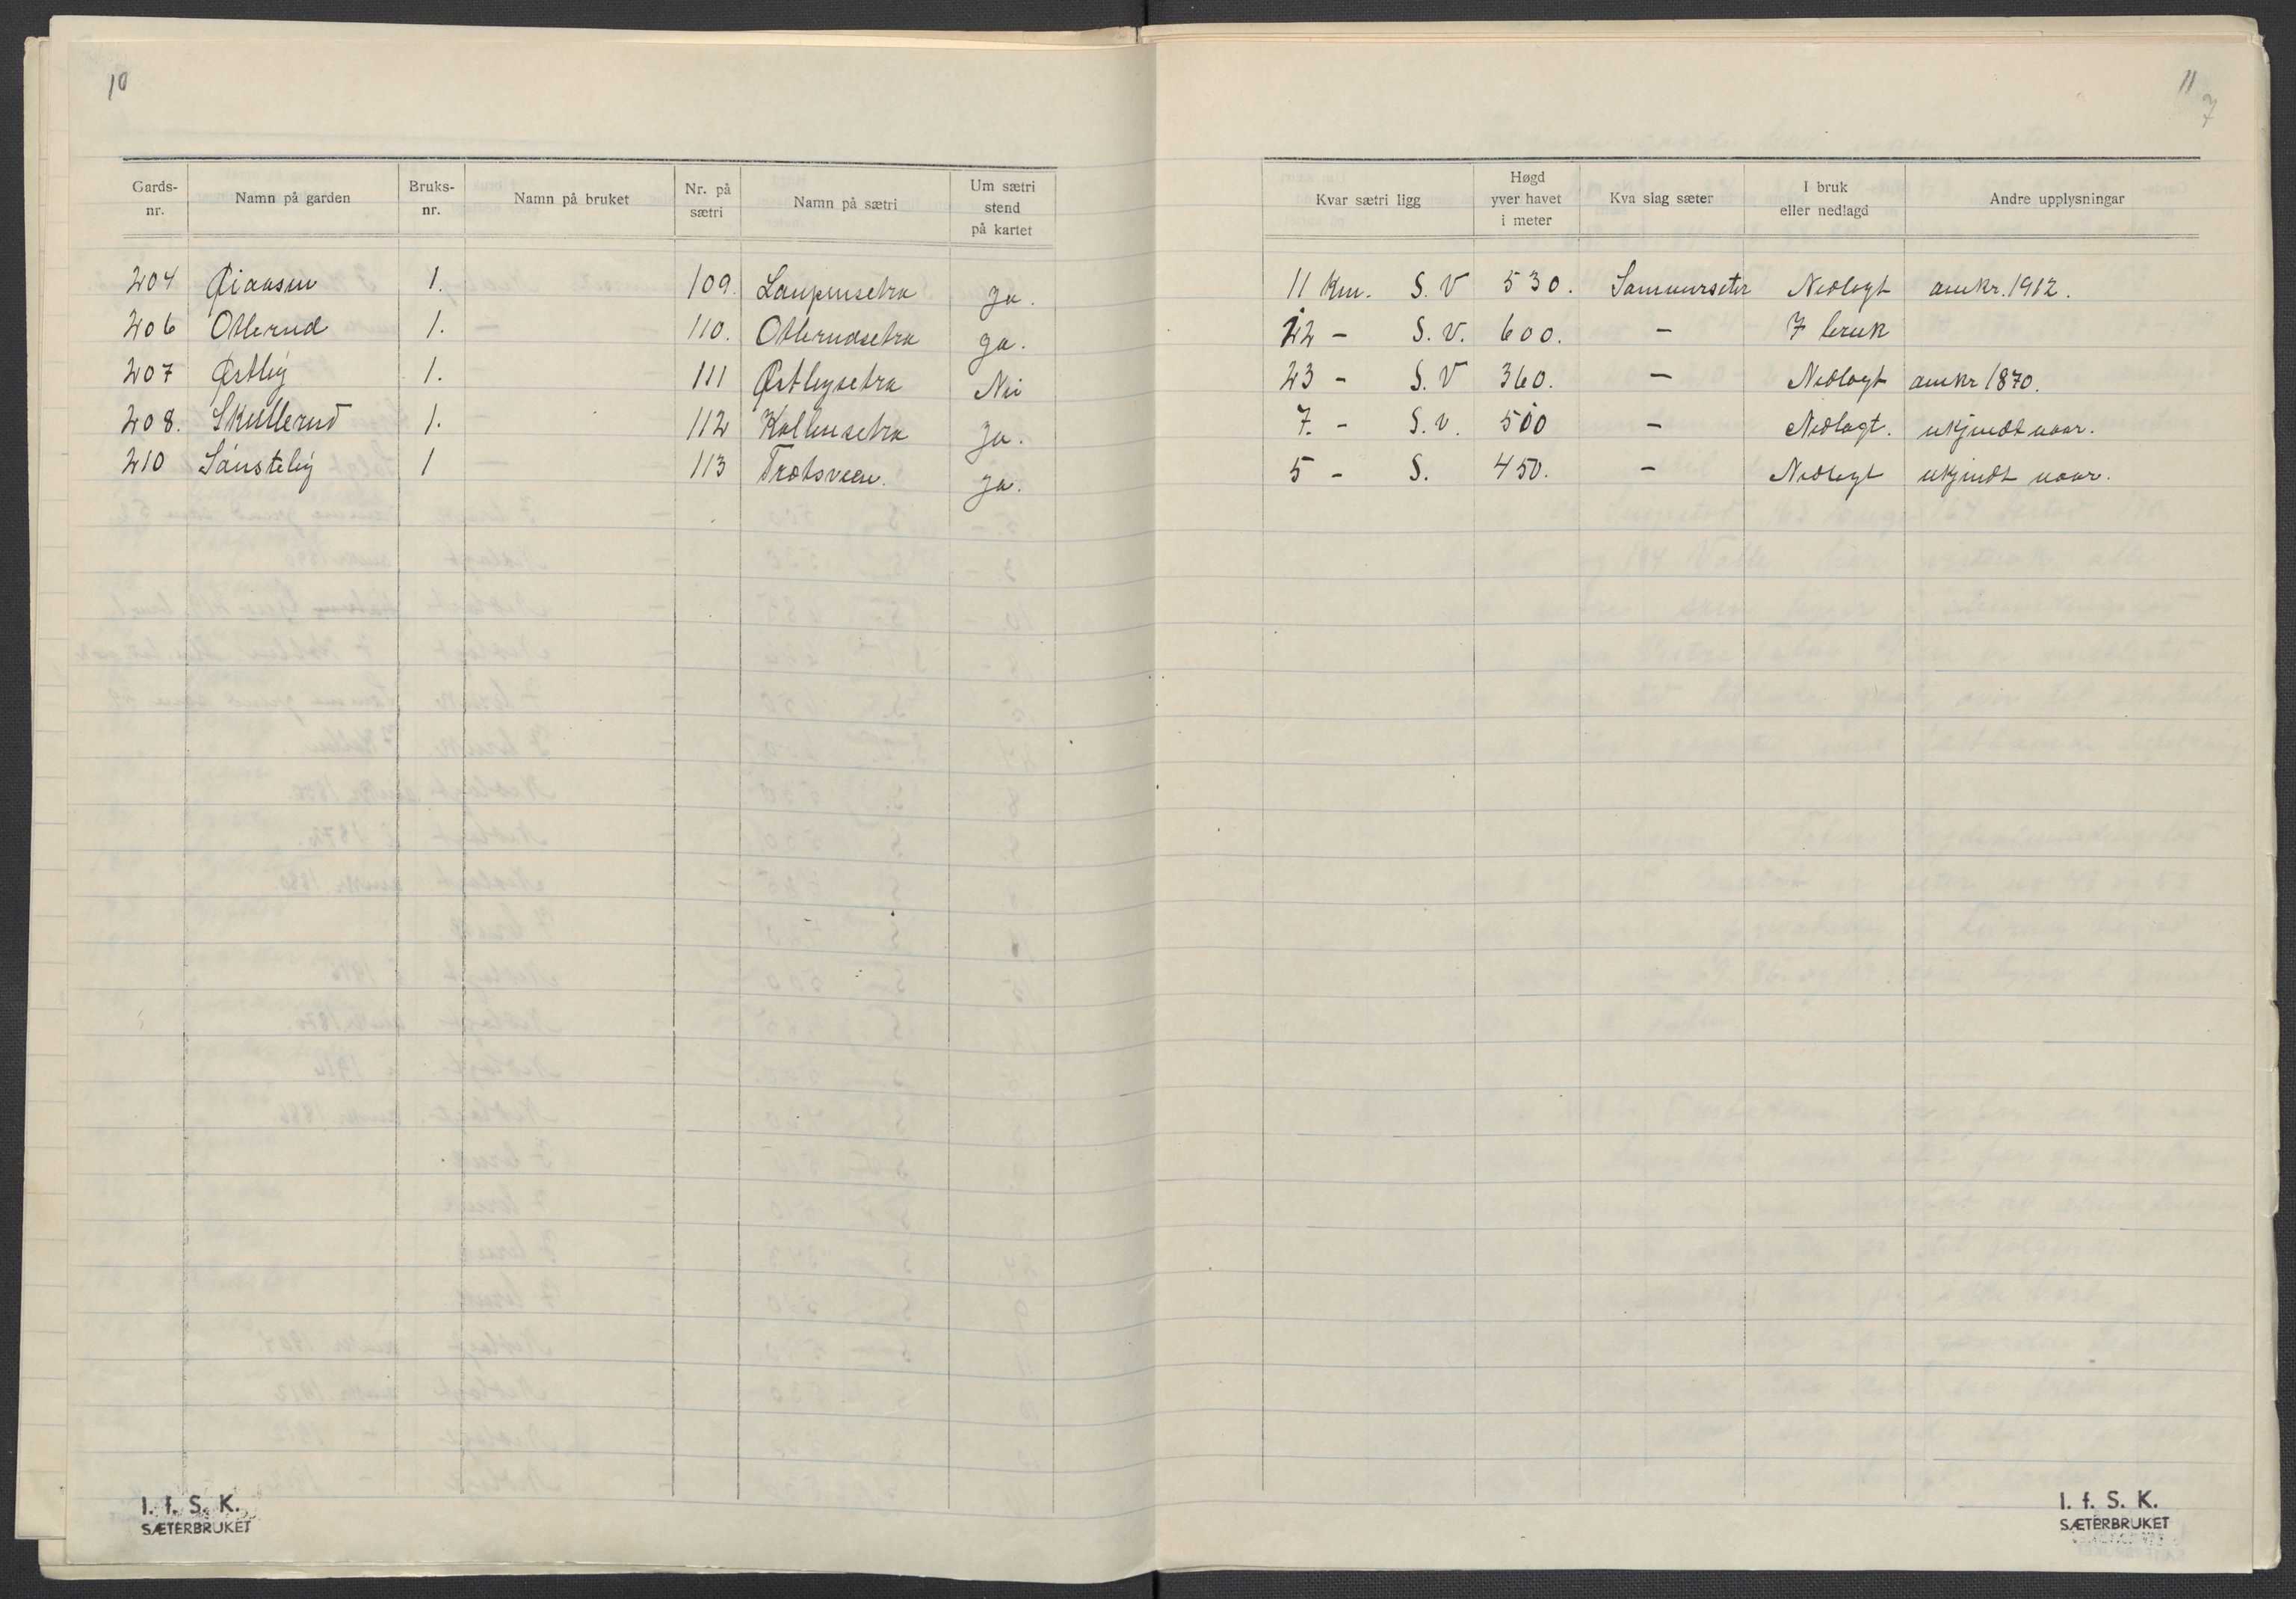 10
Gards-nr. Namn på garden Bruks-nr. Namn på bruket Nr. på sætri Namn på sætri Um sætri stend på kartet
204 Øiaasen 1. 109. Laupensetra ja.
206 Otterud 1. 110. Otterudsetra ja.
207 Østlig 1. 111 Østligsetra Nei
208. Skullerud 1. 112 Kollensetra ja.
210 1 113 ja.
I. f. S. K.
SÆTERBRUKET
11
7
Kvar sætri ligg Høgd yver havet i meter Kva slag sæter I bruk eller nedlagd Andre upplysningar
11 Km. S. V 530. Sommerseter Nedlagt omkr. 1912.
22 - S. V. 600. - I bruk
23 - S. V 360. - Nedlagt omkr 1870.
7. - S. V. 500 - Nedlagt. ukjendt naar.
5 - S. 450. - Nedlagt ukjendt naar.
I. f. S. K.
SÆTERBRUKET